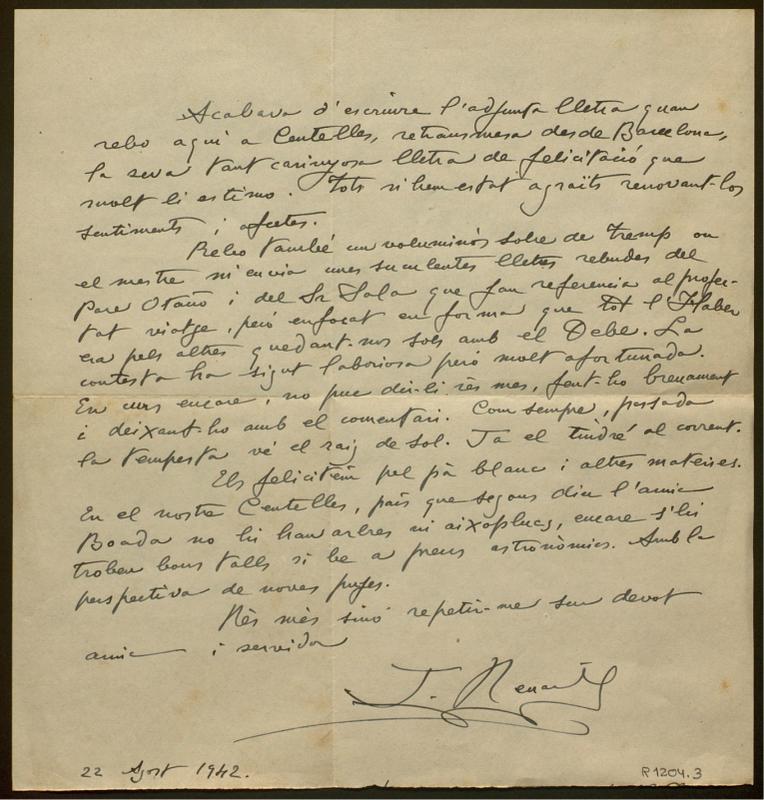 Acabava d'escriure l'adjunta lletra quan
rebo aquí a Centelles, retransmesa desde Barcelona,
la seva tant carinyosa lletra de felicitació que
molt li estimo. Tots n'hem estat agraïts renovant-los
sentiments i afectes.
Rebo també un voluminós sobre de Tremp on
el mestre m'envia unes suculentes lletres rebudes del
Pare Otaño i del Sr Sala que fan referencia al projec-
tat viatge, peró enfocat en forma que tot l'Haber
era pels altres quedant-nos sols amb el Debe. La
contesta ha sigut laboriosa peró molt afortunada.
En curs encare, no puc dir-li rès mes, fent-ho breument
i deixant-ho amb el comentari. Com sempre, passada
la tempesta vé el raig de sol. Ja el tindré al corrent.
Els felicitem pel pà blanc i altres materies.
En el nostre Centelles, país que segons diu l'amic
Boada no hi han arbres ni aixoplucs, encare s'hi
troben bons talls si be a preus astronòmics. Amb la
perspectiva de noves puges.
Rès mès sinó repetir-me son devot
amic i servidor
J. Renart
22 Agost 1942.
R 1204.3